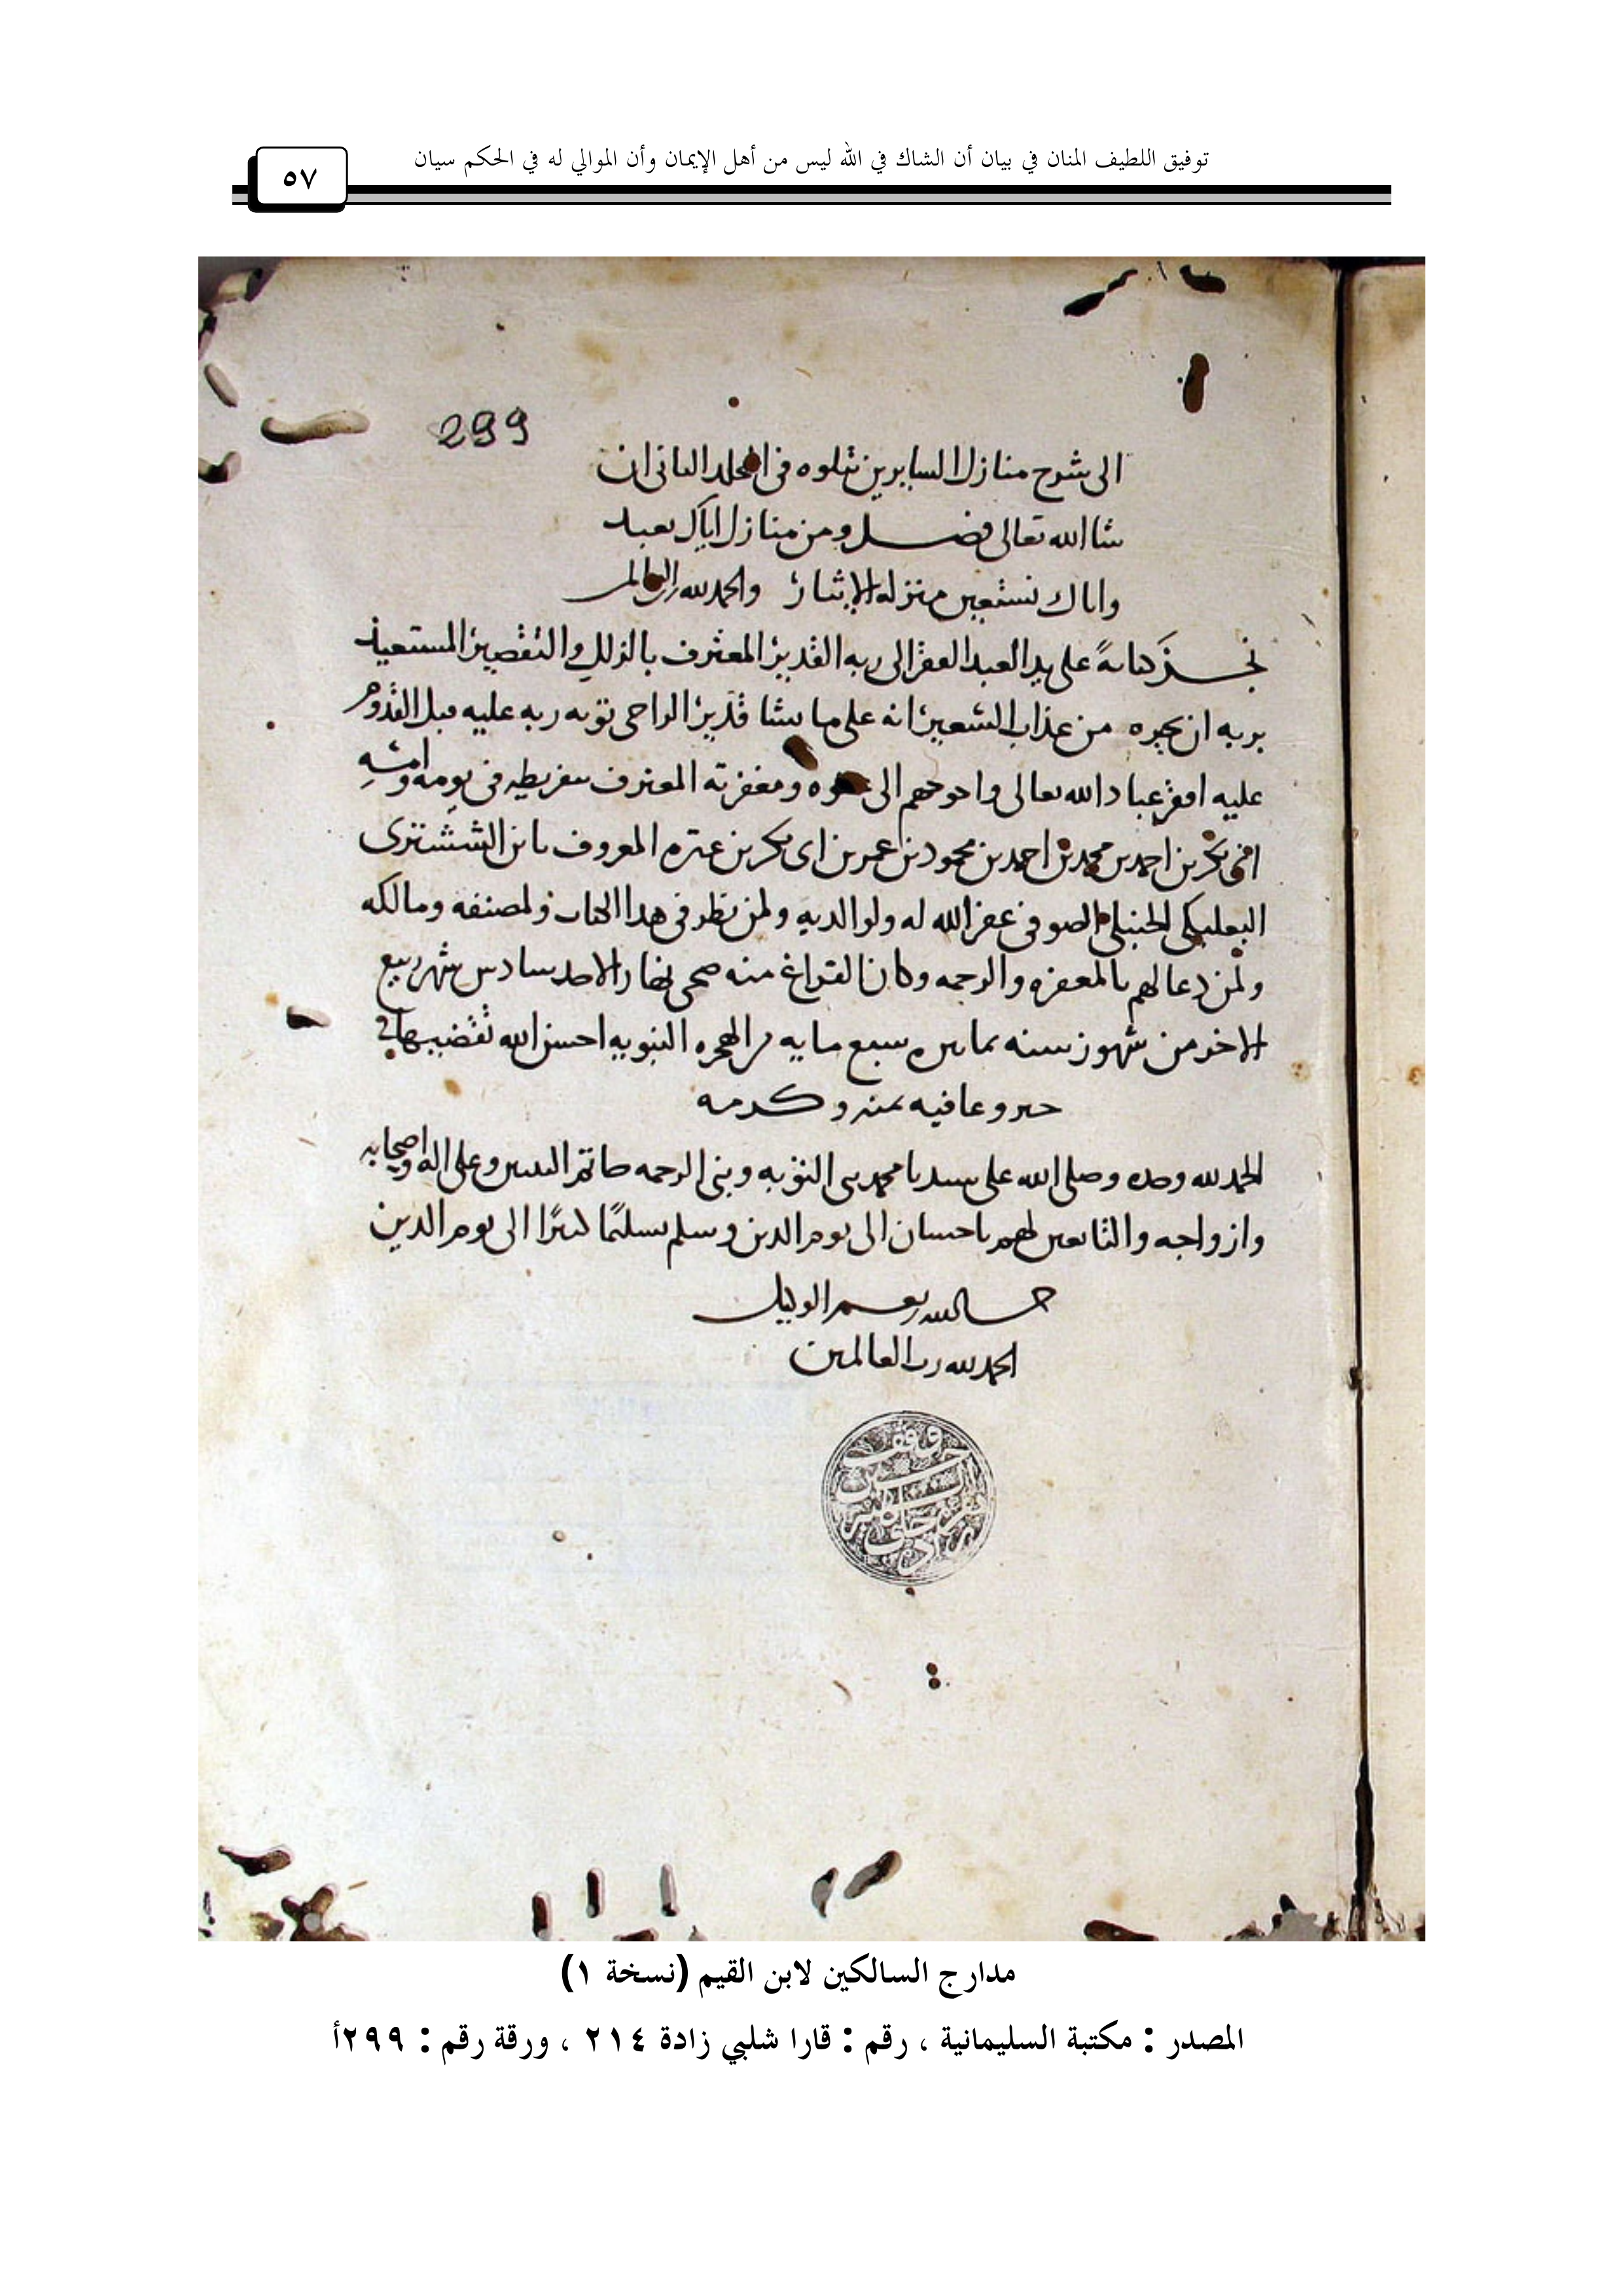 توفيق اللطيف المنان في بيان أن الشاك في الله ليس من أهل الإيمان وأن الموالي له في الحكم سيان
٥٧
299
الى شرح منازل السايرين تتلوه فى المجلد الثانى ان
شا الله تعالى فصل ومن منازل اياك نعبد
واياك نستعين منزله الايثار والحمد لله رب العالمين
نجز كتابةً على يد العبد الفقير الى ربه القدير المعترف بالزلل والتقصير المستعيذ
بربه ان يجيره من عذاب السعير انه على ما يشا قدير الراجى توبه ربه عليه قبل القدوم
عليه افقر عباد الله تعالى واحوجهم الى عفوه ومغفرته المعترف بتفريطه فى يومه وامسه
بن احمد بن محمد بن احمد بن محمود بن عمر بن ابى بكر بن المعروف بابن الششترى
البعلبكى الحنبلى الصوفى غفر الله له ولوالديه ولمن نظر فى هذا الكتاب ولمصنفه ومالكه
ولمن دعا لهم بالمغفره والرحمه وكان الفراغ منه ضحى نهار الاحد سادس شهر ربيع
الاخر من شهور سنه سبع مايه من الهجره النبويه احسن الله تقضيها فى
خير وعافيه بمنه وكرمه
الحمد لله وحده وصلى الله على سيدنا محمد نبى التوبه ونبى الرحمه خاتم النبيين وعلى اله واصحابه
وازواجه والتابعين لهم باحسان الى يوم الدين وسلم تسليمًا كثيرًا الى يوم الدين
حسبنا الله ونعم الوكيل
الحمد لله رب العالمين
مدارج السالكين لابن القيم (نسخة ١)
المصدر : مكتبة السليمانية ، رقم : قارا شلبي زادة ٢١٤ ، ورقة رقم : ٢٩٩أ